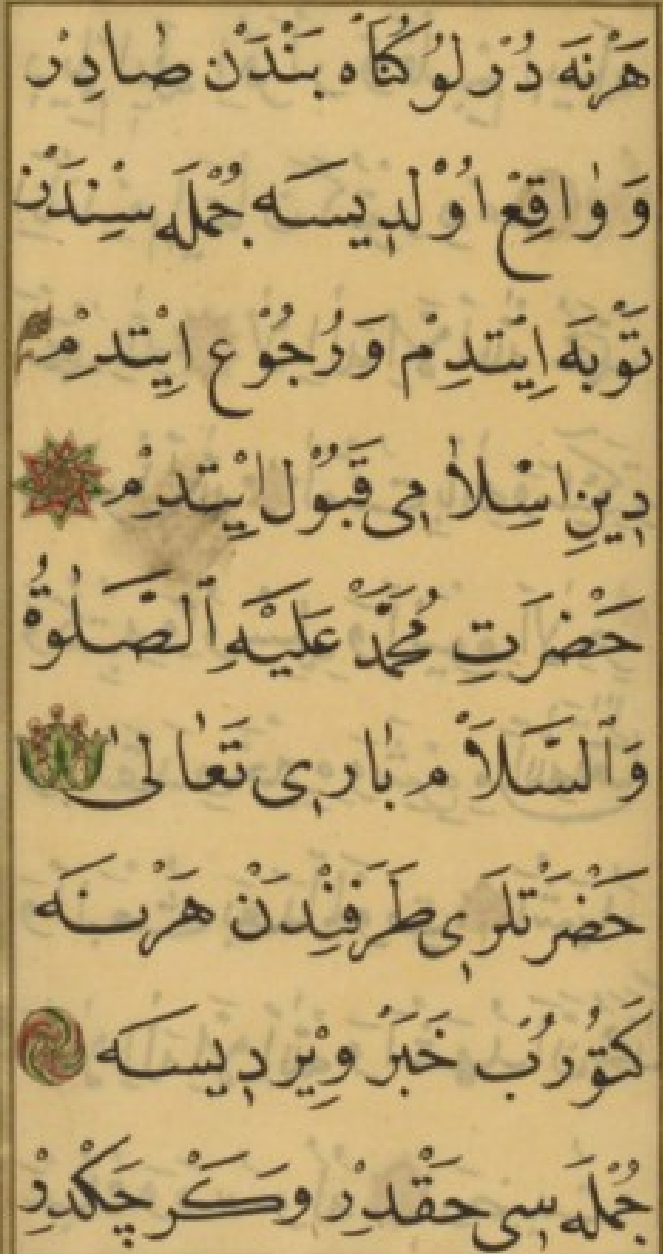 هَرْنَه دُرْلُو كُنَاه بَنْدَنْ صَادِرْ
وَ وَاقِعْ اُوْلدِيسَه جُمْلَه سِنْدَنْ
تَوْبَه اِيْتدِمْ وَرُجُوْع اِيْتدِمْ
دِينِ اِسْلاٰمِى قَبُوْل اِيْتدِمْ
حَضْرَتِ مُحَمَّدْ عَلَيْهِ ٱلصَّلٰوةُ
وَٱلسَّلَامْ بَارِى تَعَالٰى
حَضْرَتْلَرِى طَرَفِنْدَنْ هَرْنَه
كَتُوْرُبْ خَبَرْ وِيْردِيسَه
جُمْلَه سِى حَقْدِرْ وَكَرْچَكْدِرْ